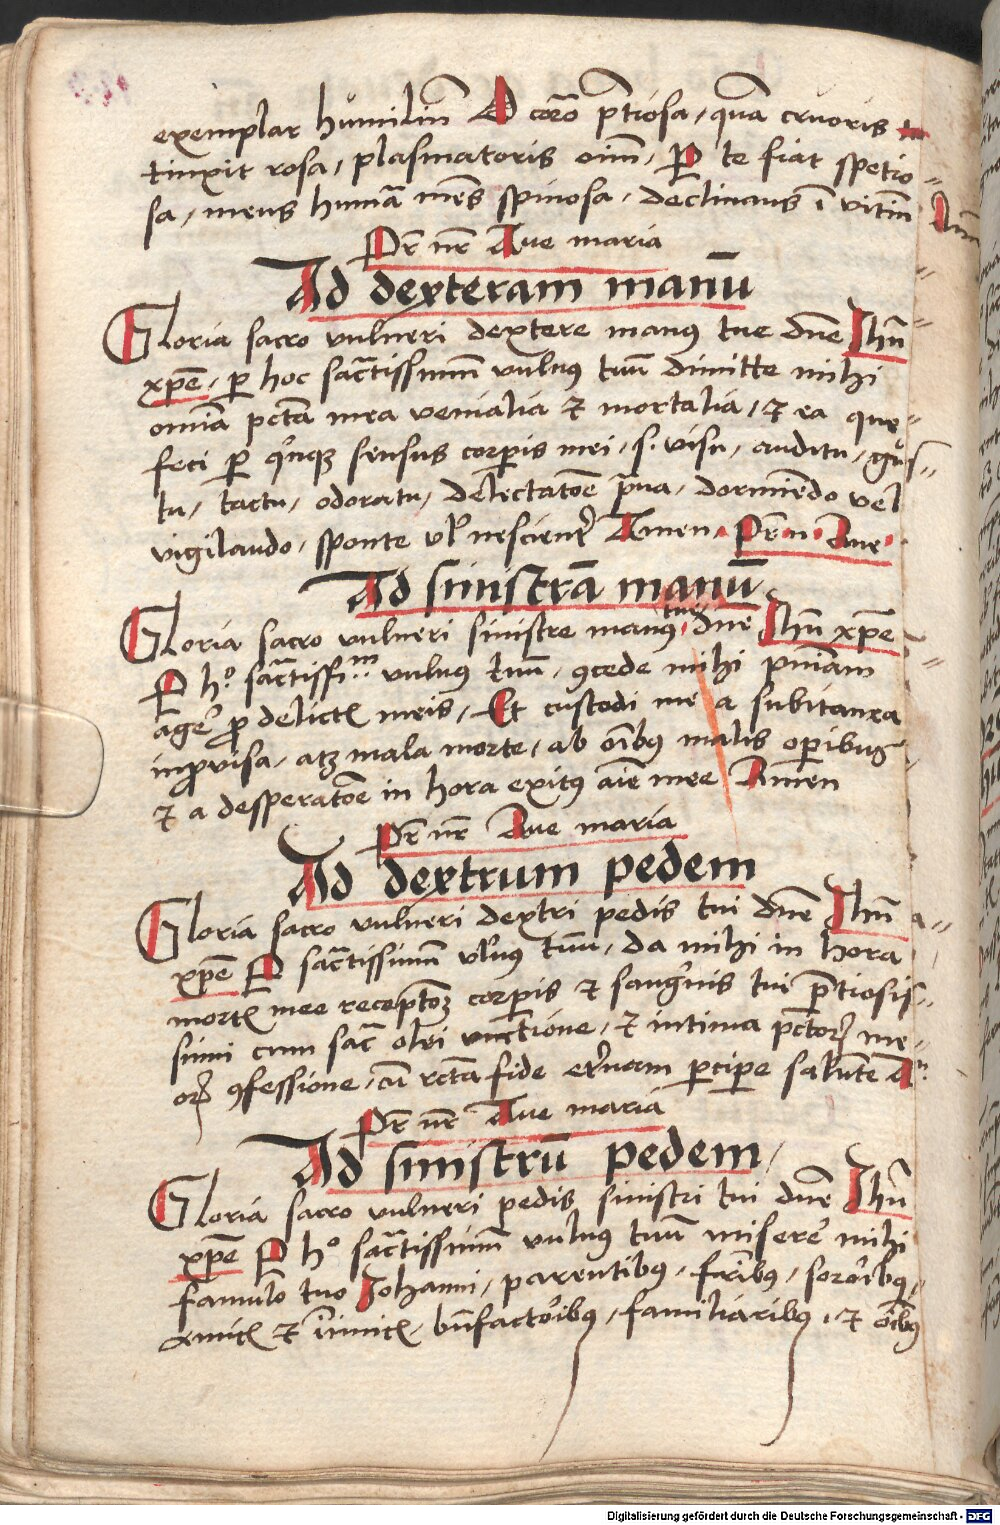 exemplar humiliū O corō p̄tiosa, quā cruoris
tinxit rosa, plasmatoris oīm, P te fiat spetio⸗
sa, mens humā mēs spinosa, declinans ī vitiū Am̄
Pr̄ nr̄ Aue maria
Ad dexteram manū
Gloria sacro vulneri dextere manus tue dn̄e Ihū
xp̄e, p hoc sāctissimū vulnus tuū dimitte mihi
omīa pctā mea venialia et mortalia, et ea que⸗
feci p quīq; sensus corpis mei, s. visu, auditu, gus⸗
tu, tactu, odoratu, delectatōe praua, dormiendo vel
vigilando, sponte ul nescienter Amen. Pr̄ n̄ Aue
Ad sinistrā manū
Gloria sacro vulneri sinistre manus tue dn̄e Ihū xp̄e
P ho sāctissim vulnus tuū, ꝯcede mihi pniam
agere p delictis meis, Et custodi me a subitanea
improuisa, atq; mala morte, ab oībus malis operibus
et a desperatōe in hora exitus aīe mee Amen
Pr̄ nr̄ Aue maria
Ad dextrum pedem
Gloria sacro vulneri dextri pedis tui dn̄e Ihū
xp̄e P sāctissimū vlnus tuū, da mihi in hora
mortis mee receptōꝫ corpis et sanguīs tui p̄tiosis⸗
simi cum sac̄ olei vnctione, et intima pctorꝝ me⸗
orꝝ ꝯfessione, cū rctā fide eternam pcipe salutē A
Pr̄ nr̄ Aue maria
Ad sinistrū pedem
Gloria sacro vulneri pedis sinistri tui dn̄e Ihū
xp̄e P ho sāctissimū vulnus tuū miserere mihi
famulo tuo Iohanni, parentibus, fr̄ibus, sororibus,
amicis et īimicis bn̄factoribus, familiaribus, et oībus
Digitalisierung gefördert durch die Deutsche Forschungsgemeinschaft - DFG